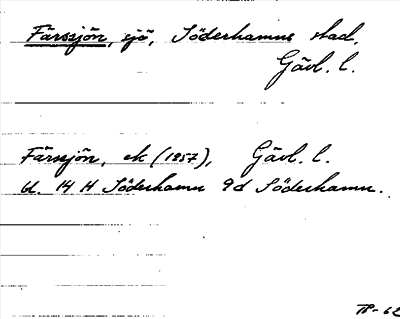 Färssjön, sjö, Söderhamns stad,
Gävl. l.
Färsjön, ek (1957), Gävl. l.
bl. 14 H Söderhamn 9d Söderhamn.
TP-62